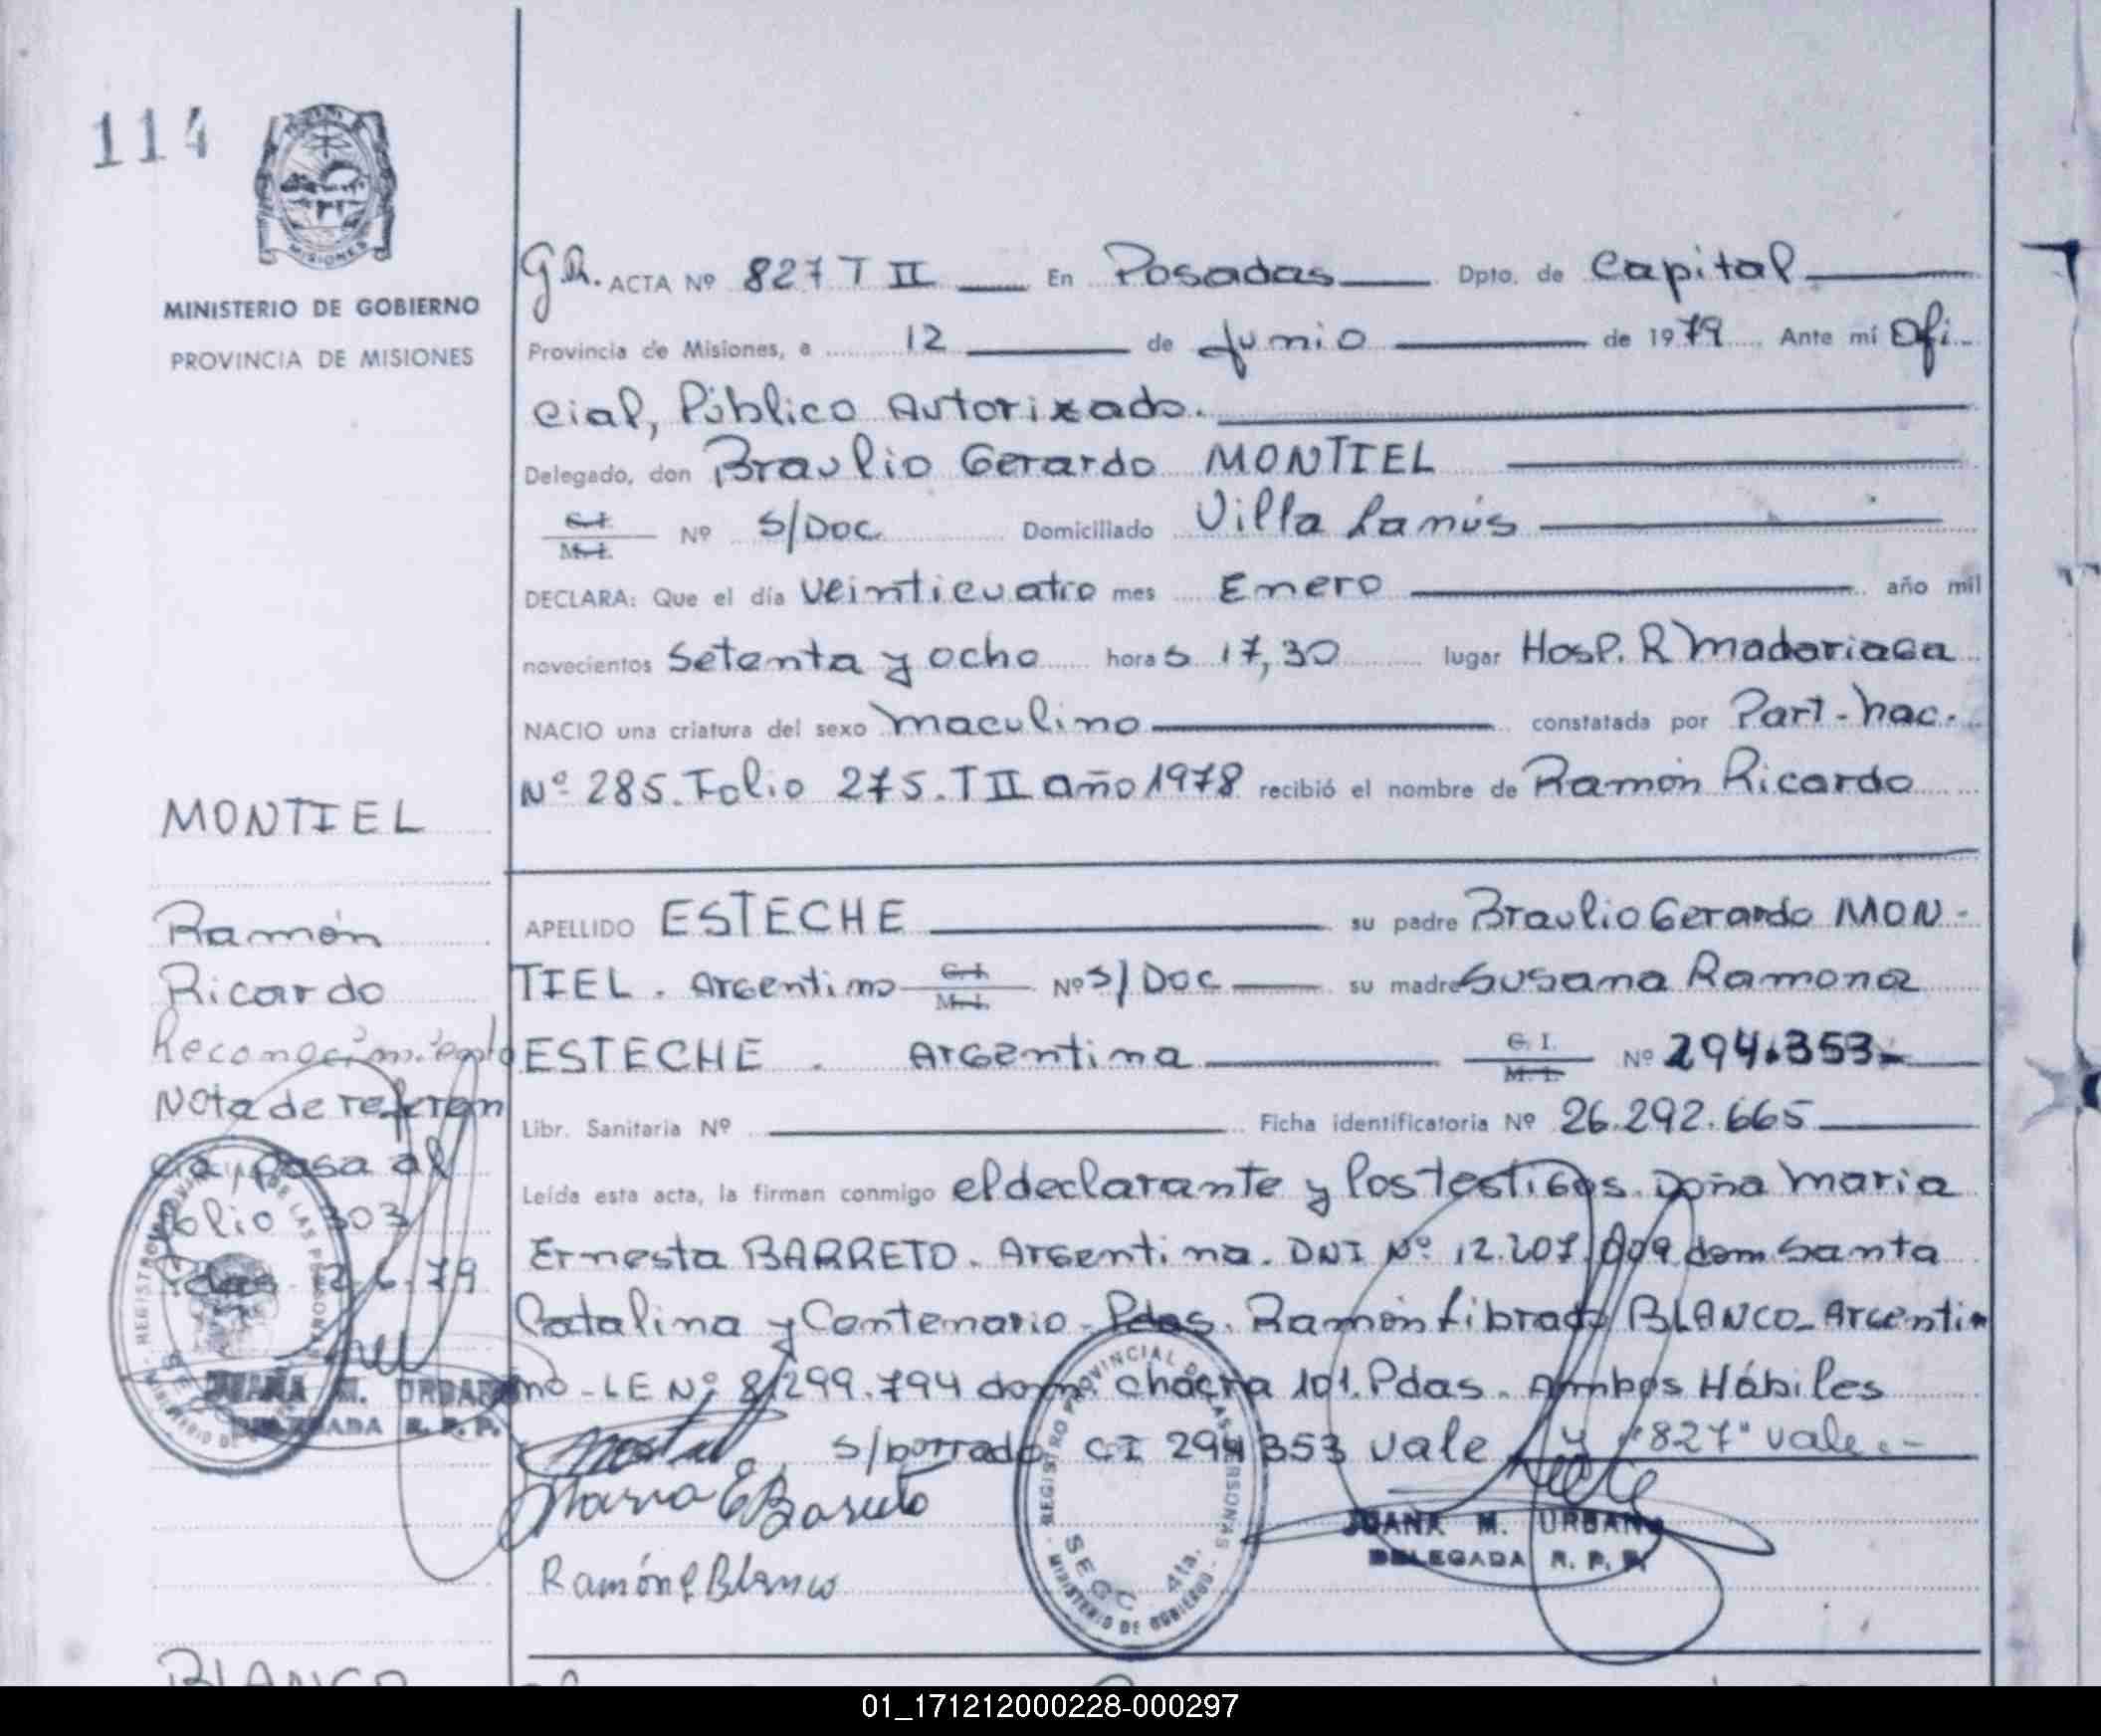 114
MISIONES
MINISTERIO DE GOBIERNO
PROVINCIA DE MISIONES
G R. ACTA Nº 827 T II En Posadas Dpto. de Capital
Provincia de Misiones, a 12 de Junio de 1979 Ante mí Ofi-
cial, Público Autorizado.
Delegado, don Braulio Gerardo MONTIEL
C.I. M.I. Nº S/Doc Domiciliado Villa Lanús
DECLARA: Que el día veinticuatro mes Enero año mil
novecientos setenta y ocho horas 17,30 lugar Hosp. R Madariaga
NACIO una criatura del sexo maculino constatada por Part-nac.
Nº 285. Folio 275. T II año 1978 recibió el nombre de Ramón Ricardo
APELLIDO ESTECHE su padre Braulio Gerardo MON-
TIEL. Argentino C.I. M.I. Nº S/Doc su madre Susana Ramona
ESTECHE. Argentina C.I. M.I. Nº 294.353-
Libr. Sanitaria Nº Ficha identificatoria Nº 26.292.665
Leída esta acta, la firman conmigo el declarante y los testigos. Doña Maria
Ernesta BARRETO. Argentina. DNI Nº 12.207.009 dom Santa
Catalina y Centenario-Pdas. Ramón Librado BLANCO-Argentin
no-LE Nº 8.299.794 dom. chacra 101. Pdas. Ambos Hábiles
s/borrado CI 294353 vale y "827" vale.-
Maria E Barreto
Ramón L Blanco
REGISTRO PROVINCIAL DE LAS PERSONAS
SECC. 4ta.
MINISTERIO DE GOBIERNO
JUANA M. URBANO
DELEGADA R. P. P.
MONTIEL
Ramón
Ricardo
Reconocimiento
Nota de referen
cia, pasa al
folio 303
Pdas 12.6.79
JUANA M. URBANO
DELEGADA R. P. P.
BLANCO
01_171212000228-000297